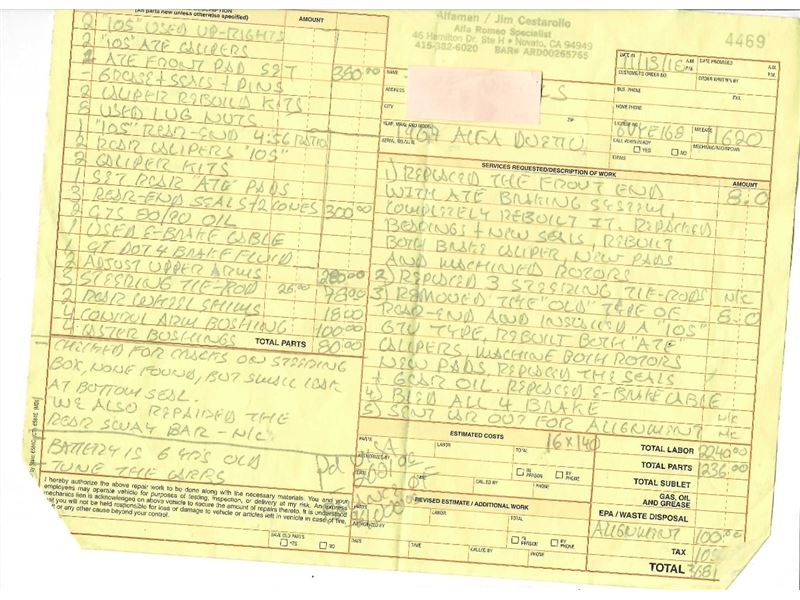 (All parts new unless otherwise specified)
AMOUNT
2 "105" USED UP-RIGHTS
2 "105" ATE CALIPERS
2 ATE FRONT PAD SET 350.00
- GREASE + SEALS + PINS
2 CALIPER REBUILD KITS
8 USED LUG NUTS
1 "105" REAR-END 4:56 RATIO
2 REAR CALIPERS "105"
2 CALIPER KITS
1 SET REAR "ATE" PADS
3 REAR-END SEALS + 2 CONES 300.00
2 QTS 80/90 OIL
1 USED E-BRAKE CABLE
1 QT DOT 4 BRAKE FLUID
2 ADJUST UPPER ARMS 280.00
3 STEERING TIE-ROD 26.00 78.00
2 REAR WHEEL SHIMS 18.00
4 CONTROL ARM BUSHING 100.00
4 CASTER BUSHINGS 80.00
TOTAL PARTS
CHECKED FOR CRACKS ON STEERING
BOX, NONE FOUND, BUT SMALL LEAK
AT BOTTOM SEAL.
WE ALSO REPAIRED THE
REAR SWAY BAR - N/C
BATTERY IS 6 YRS OLD
TUNE THE CARBS
I hereby authorize the above repair work to be done along with the necessary materials. You and your
employees may operate vehicle for purposes of testing, inspection, or delivery at my risk. An express
mechanics lien is acknowledged on above vehicle to secure the amount of repairs thereto. It is understood
that you will not be held responsible for loss or damage to vehicle or articles left in vehicle in case of fire,
or any other cause beyond your control.
SAVE OLD PARTS
YES NO
Alfaman / Jim Cestarollo
Alfa Romeo Specialist
46 Hamilton Dr. Ste H • Novato, CA 94949
415-382-6020 BAR# ARD00265765
4469
DATE IN
11/13/16
A.M.
P.M.
DATE PROMISED
A.M.
P.M.
NAME
CUSTOMER'S ORDER NO.
ORDER WRITTEN BY
ADDRESS
BUS. PHONE
EXT.
CITY
ZIP
HOME PHONE
YEAR, MAKE AND MODEL
1967 ALFA DUETTO
LICENSE NO.
6VYE168
MILEAGE
11620
SERIAL NO.
CALL WHEN READY
YES NO
TERMS
SERVICES REQUESTED/DESCRIPTION OF WORK
AMOUNT
1) REPLACED THE FRONT END 8.0
WITH ATE BRAKING SYSTEM,
COMPLETELY REBUILT IT. REPACKED
BEARINGS + NEW SEALS, REBUILT
BOTH BRAKE CALIPER, NEW PADS
AND MACHINED ROTORS
2) REPLACED 3 STEERING TIE-RODS N/C
3) REMOVED THE "OLD" TYPE OF 8.0
REAR-END AND INSTALLED A "105"
GTV TYPE, REBUILT BOTH "ATE"
CALIPERS, MACHINE BOTH ROTORS
NEW PADS. REPLACED THE SEALS
+ GEAR OIL. REPLACED E-BRAKE CABLE
4) BLED ALL 4 BRAKE N/C
5) SENT CAR OUT FOR ALIGNMENT N/C
ESTIMATED COSTS
PARTS
LABOR
TOTAL
16 x 140
AUTHORIZED BY
DATE
TIME
CALLED BY
IN PERSON
BY PHONE
PHONE
REVISED ESTIMATE / ADDITIONAL WORK
PARTS
LABOR
TOTAL
AUTHORIZED BY
DATE
TIME
CALLED BY
IN PERSON
BY PHONE
PHONE
TOTAL LABOR 2240.00
TOTAL PARTS 1236.00
TOTAL SUBLET
GAS, OIL
AND GREASE
EPA / WASTE DISPOSAL
ALIGNMENT 100.00
TAX 105
TOTAL 3681